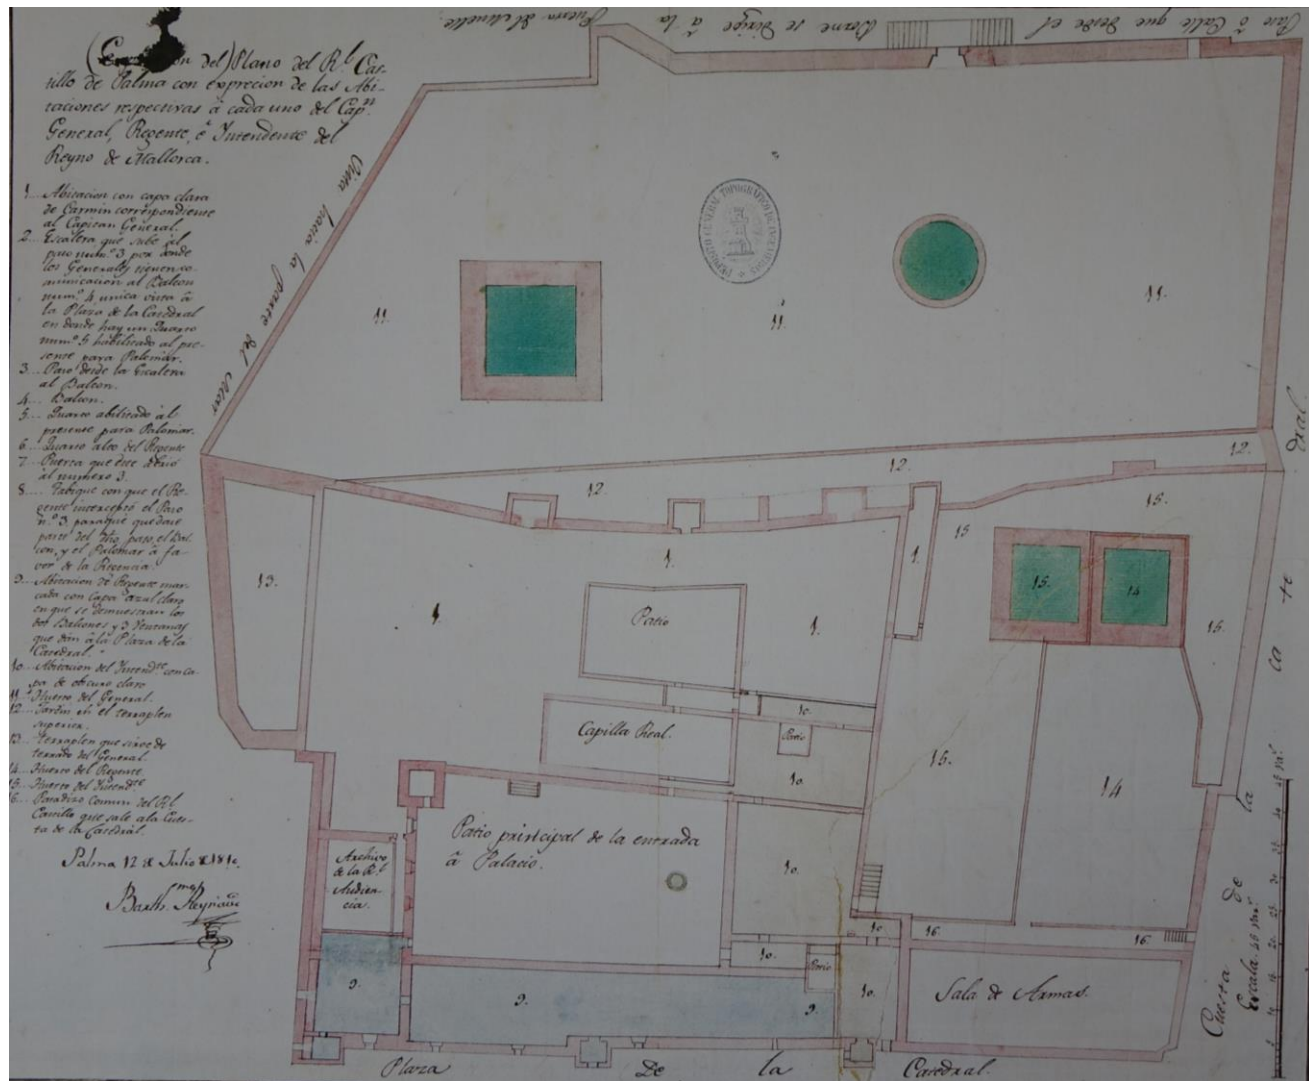 del) Plano del R.l Cas-
tillo de Palma con exprecion de las Abi-
taciones respectivas â cada uno del Cap.n
General, Regente, ê Intendente del
Reyno de Mallorca.
1... Abitacion con capa clara
de Carmin correspondiente
al Capitan General.
2... Escalera que sube al
paso num.o 3 por donde
los Generales tienen co-
municacion al Balcon
num.o 4 unica vista â
la Plaza de la Catedral
en donde hay un Quarto
num.o 5 habilitado al pre-
sente para Palomar.
3... Paso desde la Escalera
al Balcon.
4... Balcon.
5... Quarto abilitado al
presente para Palomar.
6... Quarto alto del Regente
7... Puerta que este abrió
al numero 3.
8... Tabique con que el Re-
gente interceptó el Paso
n.o 3. paraque quedase
parte del dho paso, el Bal-
con, y el Palomar â fa-
vor de la Regencia.
9... Abitacion de Regente mar-
cada con capa azul claro
en que se demuestran los
dos Balcones y 3 Ventanas
que dan â la Plaza de la
Catedral.
10... Abitacion del Intend.te con ca-
pa de obscuro claro
11... Huerto del General.
12... Jardin en el terraplen
superior.
13... terraplen que sirve de
terrado del General.
14... Huerto del Regente
15... Huerto del Intend.te
16... Paradizo Comun del R.l
Castillo que sale a la Cues-
ta de la Catedral.
Palma 12 de Julio de
Barth.
Paso ô Calle que desde el Borne se dirige â la Puerta del Muelle
Vista hacia la parte del Mar
DEPOSITO GENERAL TOPOGRAFICO DE INGENIEROS
11.
11.
11.
12.
12.
13.
1.
1.
1.
1.
15
15.
15.
14
15.
15.
14
Patio
Capilla Real.
10.
Patio
10.
Patio principal de la entrada
â Palacio.
10.
Archivo
de la R.l
Audien-
cia.
10.
10
16.
16.
Patio
10.
9.
9.
9.
Sala de Armas.
Plaza De la Catedral.
Cuesta de la Catedral